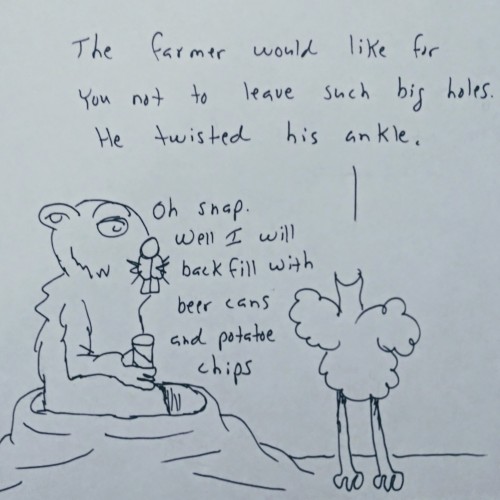 The farmer would like for
you not to leave such big holes.
He twisted his ankle.
Oh snap.
Well I will
backfill with
beer cans
and potatoe
chips